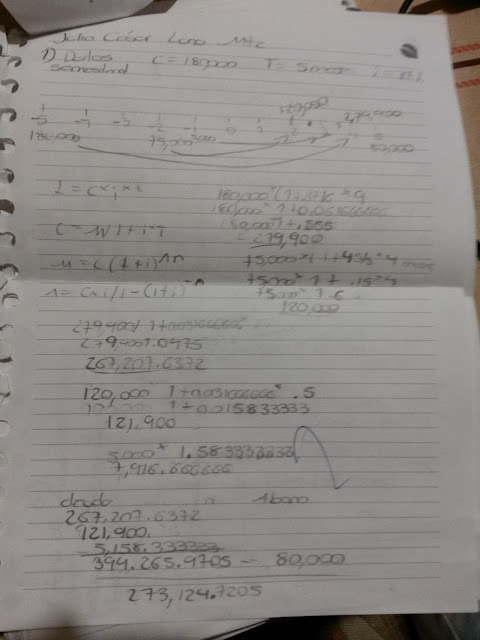 Julio César Luna Mtz
1) Datos C = 180,000 T = 5 meses i =
semestral
120,000 279,900
-5 -4 -3 -2 -1 0 1 2
180,000 75,000 80,000
I = C × i × t 180,000 * 9
180,000 * 1 + 0.061666666
C = M/1+i*t 180,000 * 1 + .555
= 279,900
M = C(1+i)^n 75,000 * 1 + 45% * 4
-n 75,000 * 1 + .15 * 4
A = C×i/1-(1+i) 75,000 * 1.6
120,000
279,900/ 1 + 0.031666666
279,900/1.0475
267,207.6372
120,000 1 + 0.031666666 * .5
1 + 0.015833333
121.900
5,000 * 1.583333333
7,916.666666
deuda Abono
267,207.6372
121,900.
5,158.333333
394,265.9705 - 80,000
273,124.7205